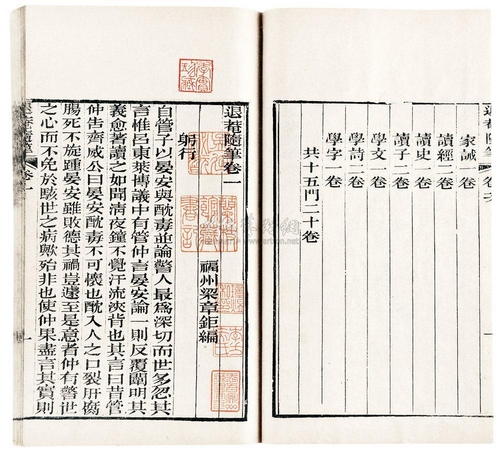 家誡一卷
讀經一卷
讀史一卷
讀子一卷
學文一卷
學詩一卷
學字一卷
共十五門二十卷
退菴隨筆卷一
福州梁章鉅編
躬行
自管子以晏安與酖毒並論警人最爲深切而世多忽其
言惟呂東萊博議中有管仲言晏安論一則反覆闡明其
義愈著讀之如聞清夜鐘不覺汗流浹背也其言曰昔管
仲告齊威公曰晏安酖毒不可懷也酖入人之口裂肝腐
腸死不旋踵晏安雖敗德其禍豈遽至是意者仲有警世
之心而不免於駭世之病歟殆非也使仲果盡言其實則
退菴隨筆 卷一 一